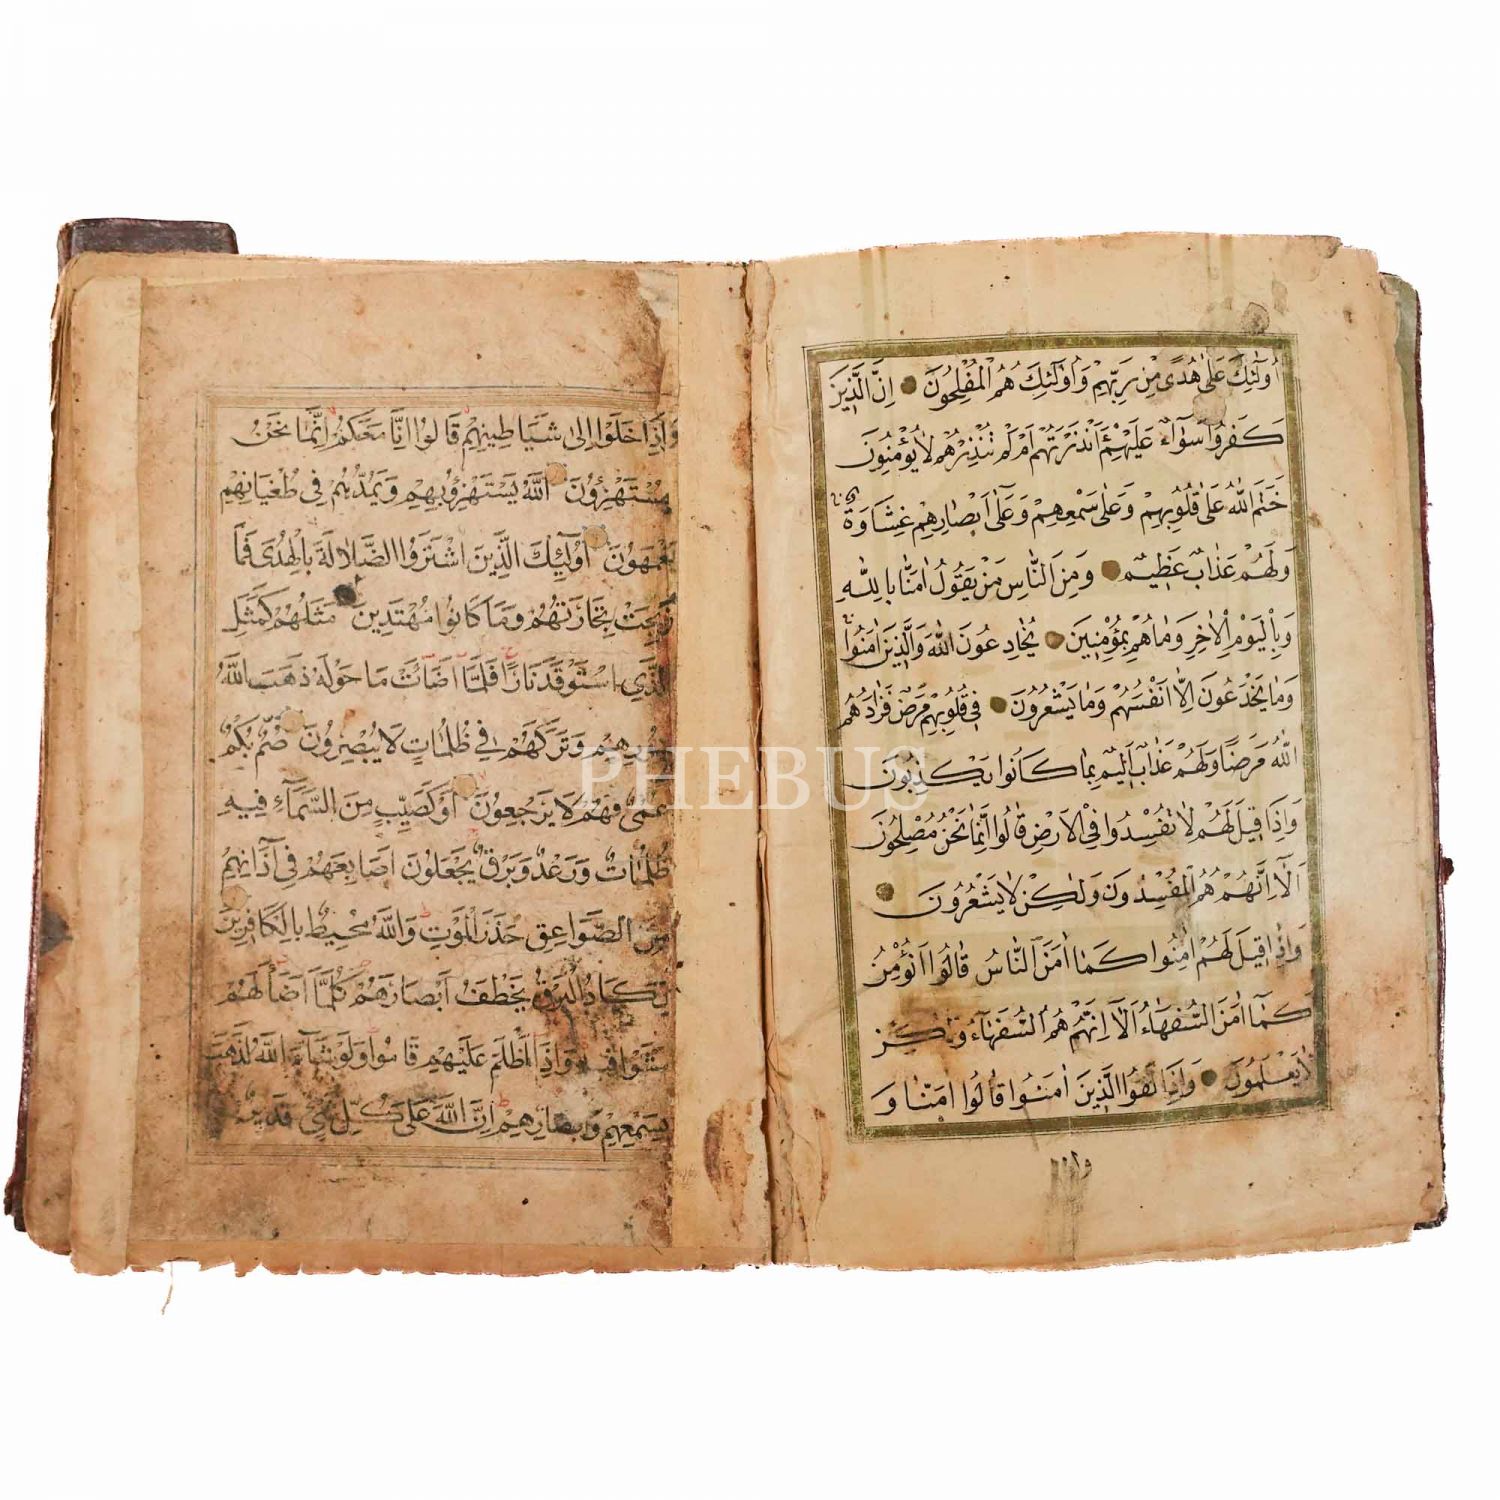 أُولَٰئِكَ عَلَىٰ هُدًى مِنْ رَبِّهِمْ وَأُولَٰئِكَ هُمُ الْمُفْلِحُونَ إِنَّ الَّذِينَ
كَفَرُوا سَوَاءٌ عَلَيْهِمْ ءَأَنْذَرْتَهُمْ أَمْ لَمْ تُنْذِرْهُمْ لَا يُؤْمِنُونَ
خَتَمَ اللَّهُ عَلَىٰ قُلُوبِهِمْ وَعَلَىٰ سَمْعِهِمْ وَعَلَىٰ أَبْصَارِهِمْ غِشَاوَةٌ
وَلَهُمْ عَذَابٌ عَظِيمٌ وَمِنَ النَّاسِ مَنْ يَقُولُ اٰمَنَّا بِاللَّهِ
وَبِالْيَوْمِ الْاٰخِرِ وَمَا هُمْ بِمُؤْمِنِينَ يُخَادِعُونَ اللَّهَ وَالَّذِينَ اٰمَنُوا
وَمَا يَخْدَعُونَ إِلَّا أَنْفُسَهُمْ وَمَا يَشْعُرُونَ فِي قُلُوبِهِمْ مَرَضٌ فَزَادَهُمُ
اللَّهُ مَرَضًا وَلَهُمْ عَذَابٌ أَلِيمٌ بِمَا كَانُوا يَكْذِبُونَ
وَإِذَا قِيلَ لَهُمْ لَا تُفْسِدُوا فِي الْأَرْضِ قَالُوا إِنَّمَا نَحْنُ مُصْلِحُونَ
أَلَا إِنَّهُمْ هُمُ الْمُفْسِدُونَ وَلَٰكِنْ لَا يَشْعُرُونَ
وَإِذَا قِيلَ لَهُمْ اٰمِنُوا كَمَا اٰمَنَ النَّاسُ قَالُوا أَنُؤْمِنُ
كَمَا اٰمَنَ السُّفَهَاءُ أَلَا إِنَّهُمْ هُمُ السُّفَهَاءُ وَلَٰكِنْ
لَا يَعْلَمُونَ وَإِذَا لَقُوا الَّذِينَ اٰمَنُوا قَالُوا اٰمَنَّا وَ
وَإِذَا خَلَوْا إِلَىٰ شَيَاطِينِهِمْ قَالُوا إِنَّا مَعَكُمْ إِنَّمَا نَحْنُ
مُسْتَهْزِؤُنَ اللَّهُ يَسْتَهْزِئُ بِهِمْ وَيَمُدُّهُمْ فِي طُغْيَانِهِمْ
يَعْمَهُونَ أُولَٰئِكَ الَّذِينَ اشْتَرَوُا الضَّلَالَةَ بِالْهُدَىٰ فَمَا
رَبِحَتْ تِجَارَتُهُمْ وَمَا كَانُوا مُهْتَدِينَ مَثَلُهُمْ كَمَثَلِ
الَّذِي اسْتَوْقَدَ نَارًا فَلَمَّا أَضَاءَتْ مَا حَوْلَهُ ذَهَبَ اللَّهُ
بِنُورِهِمْ وَتَرَكَهُمْ فِي ظُلُمَاتٍ لَا يُبْصِرُونَ صُمٌّ بُكْمٌ
عُمْيٌ فَهُمْ لَا يَرْجِعُونَ أَوْ كَصَيِّبٍ مِنَ السَّمَاءِ فِيهِ
ظُلُمَاتٌ وَرَعْدٌ وَبَرْقٌ يَجْعَلُونَ أَصَابِعَهُمْ فِي آذَانِهِمْ
مِنَ الصَّوَاعِقِ حَذَرَ الْمَوْتِ وَاللَّهُ مُحِيطٌ بِالْكَافِرِينَ
يَكَادُ الْبَرْقُ يَخْطَفُ أَبْصَارَهُمْ كُلَّمَا أَضَاءَ لَهُمْ
مَشَوْا فِيهِ وَإِذَا أَظْلَمَ عَلَيْهِمْ قَامُوا وَلَوْ شَاءَ اللَّهُ لَذَهَبَ
بِسَمْعِهِمْ وَأَبْصَارِهِمْ إِنَّ اللَّهَ عَلَىٰ كُلِّ شَيْءٍ قَدِيرٌ
PHEBUS